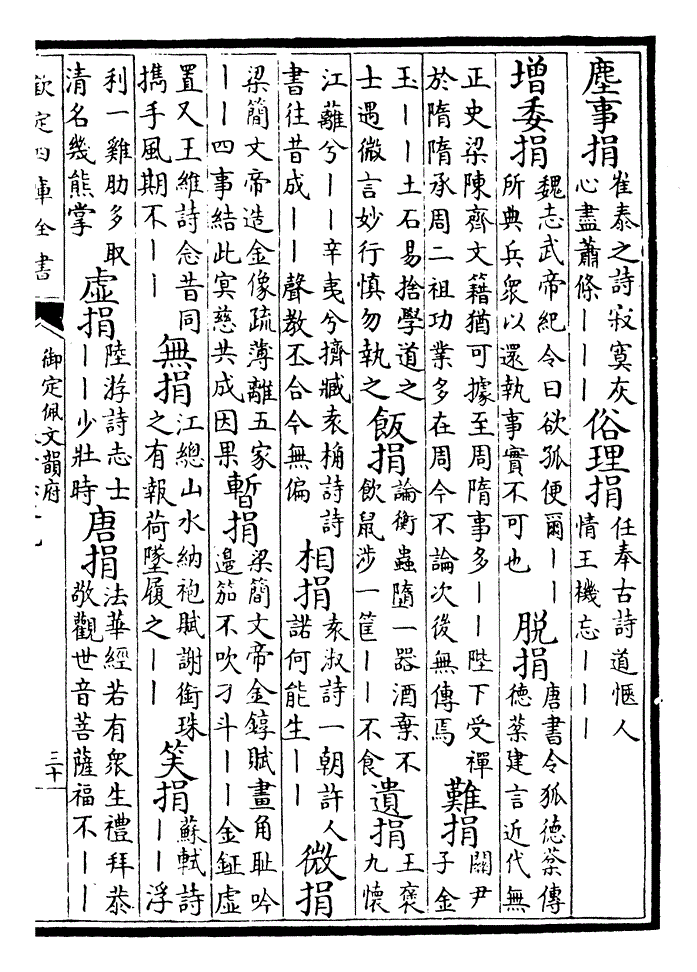 塵事捐崔泰之詩寂寞灰心盡蕭條｜｜｜俗理捐任奉古詩道愜人情王機忘｜｜｜
增委捐魏志武帝紀令曰欲孤便爾｜｜所典兵衆以還執事實不可也脱捐唐書令狐德棻傳德棻建言近代無
正史梁陳齊文籍猶可據至周隋事多｜｜陛下受禪於隋隋承周二祖功業多在周今不論次後無傳焉難捐關尹子金
玉｜｜土石易捨學道之士遇微言妙行慎勿執之飯捐論衡蟲隨一器酒棄不飲鼠涉一筐｜｜不食遺捐王褒九懷
江蘺兮｜｜辛夷兮擠臧袁桷詩詩書往昔成｜｜聲教丕合今無偏相捐袁淑詩一朝許人諾何能生｜｜微捐
梁簡文帝造金像疏薄離五家｜｜四事結此㝠慈共成因果暫捐梁簡文帝金錞賦畫角耻吟邉笳不吹刁斗｜｜金鉦虛
置又王維詩念昔同攜手風期不｜｜無捐江總山水納袍賦謝銜珠之有報荷墜履之｜｜笑捐蘇軾詩｜｜浮
利一雞肋多取清名幾熊掌虛捐陸游詩志士｜｜少壯時唐捐法華經若有衆生禮拜恭敬觀世音菩薩福不｜｜
欽定四庫全書
御定佩文韻府
三十